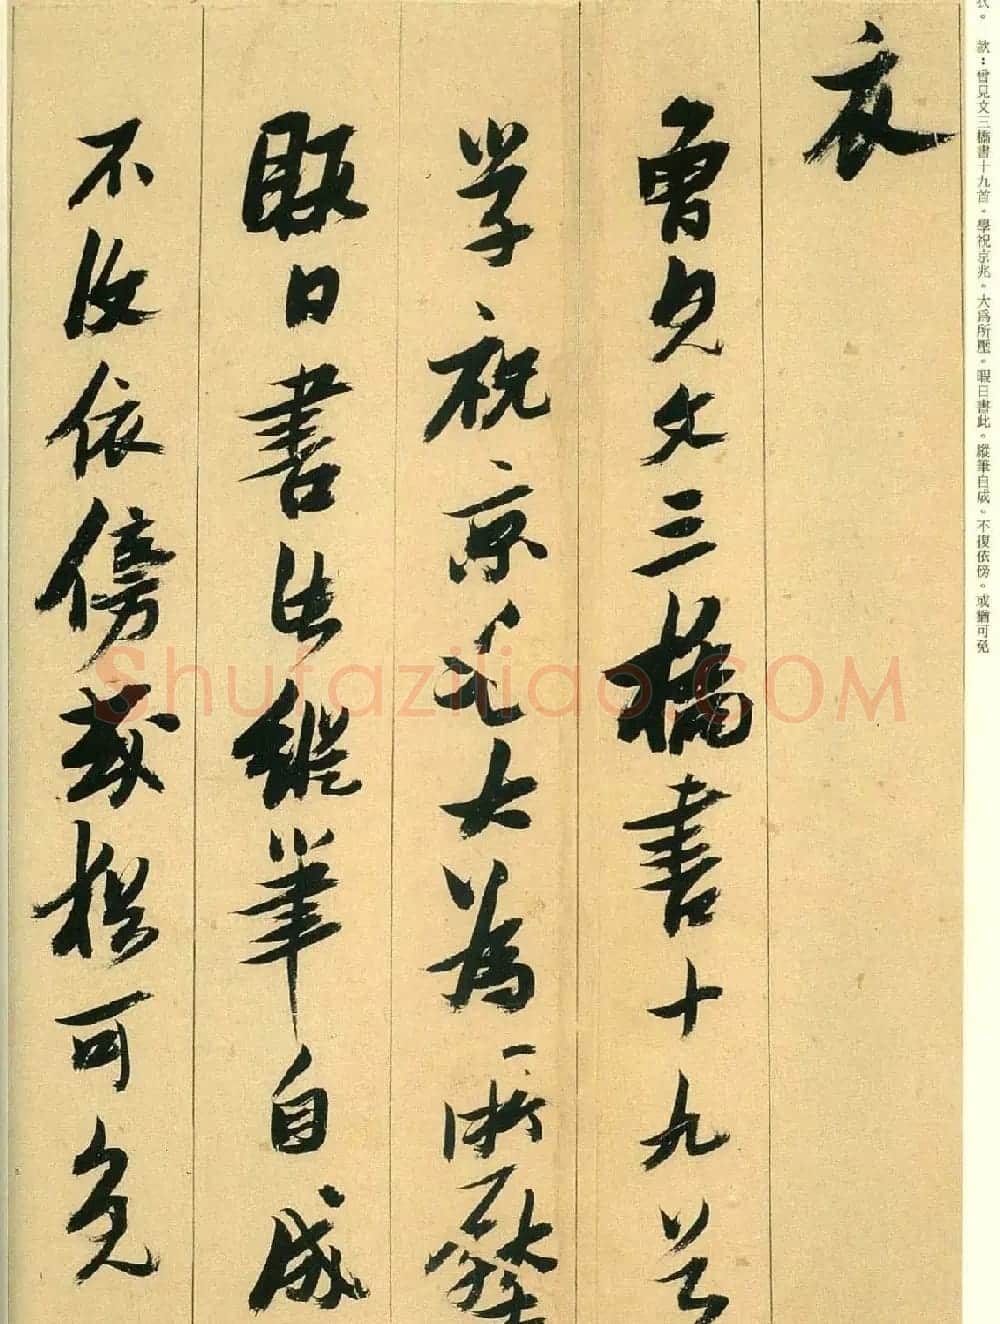 衣
曾見文三橋書十九首
学祝京兆大為所壓
暇日書此縱筆自成
不復依傍或猶可免
衣。 款：曾見文三橋書十九首。學祝京兆。大爲所壓。暇日書此。縱筆自成。不復依傍。或猶可免
Shufaziliao.COM